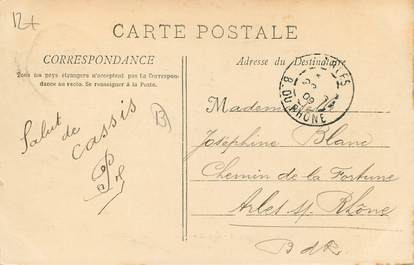 12+
CARTE POSTALE
CORRESPONDANCE
Tous les pays étrangers n'acceptent pas la Correspon-
dance au recto. Se renseigner à la Poste.
Adresse du Destinataire
B. DU-RHONE
09
Salut de
Cassis
B
Joséphine Blanc
Chemin de la Fortune
Arles s/ Rhône
B d R